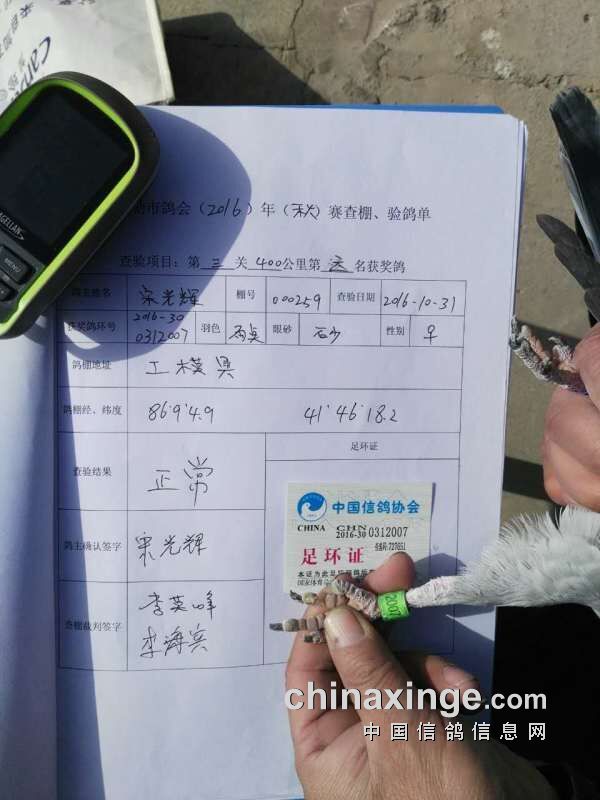 市鸽会(2016)年(秋)赛查棚、验鸽单
查验项目:第三关400公里第 名获奖鸽
鸽主姓名 宋光辉 棚号 000259 查验日期 2016-10-31
获奖鸽环号 2016-30 0312007 羽色 雨点 眼砂 石少 性别 早
鸽棚地址 工模具
鸽棚经、纬度 86°9'4.9 41°46'18.2
足环证
查验结果 正常
鸽主确认签字 宋光辉
查棚裁判签字 李英峰
李海宾
中国信鸽协会
CHINA CHN
2016-30 0312007
足环证
本证为此足环
国家体育总
2007
MAGELLAN
MENU
Canva
chinaxinge.com
中国信鸽信息网